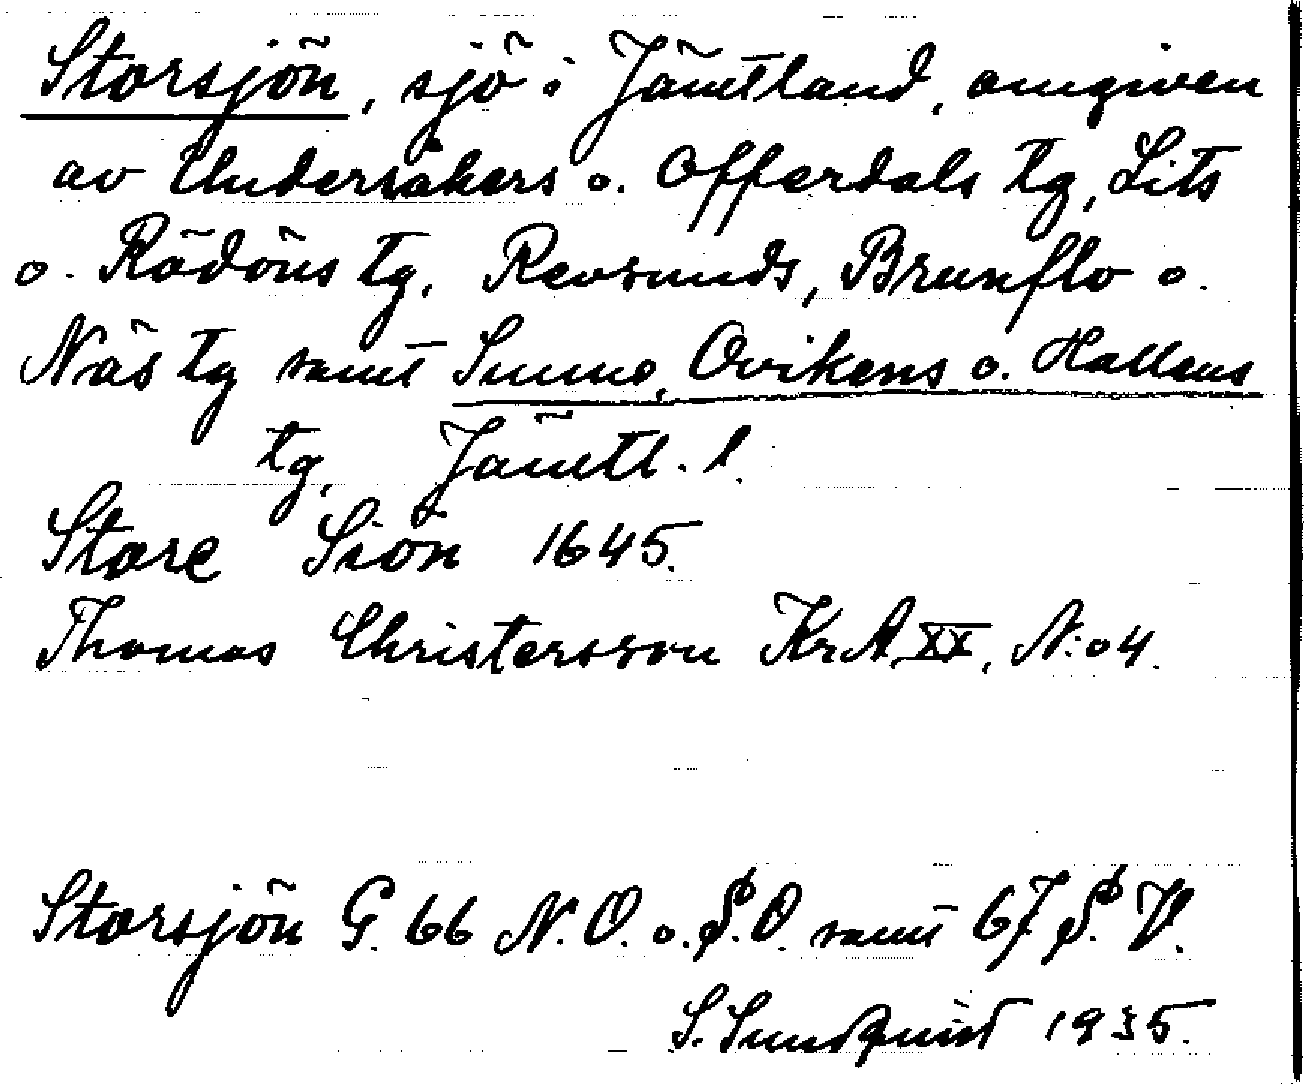 Storsjön, sjö i Jämtland, omgiven
av Undersåkers o. Offerdals tg, Lits
o. Rödöns tg, Revsunds, Brunflo o.
Näs tg samt Sunne, Ovikens o. Hallens
tg, Jämtl. l.
Store Siön 1645.
Thomas Christersson KrA XX, N:o 4.
Storsjön G. 66 N.O. o. S.O. samt 67 S.V.
S. Sundquist 1935.